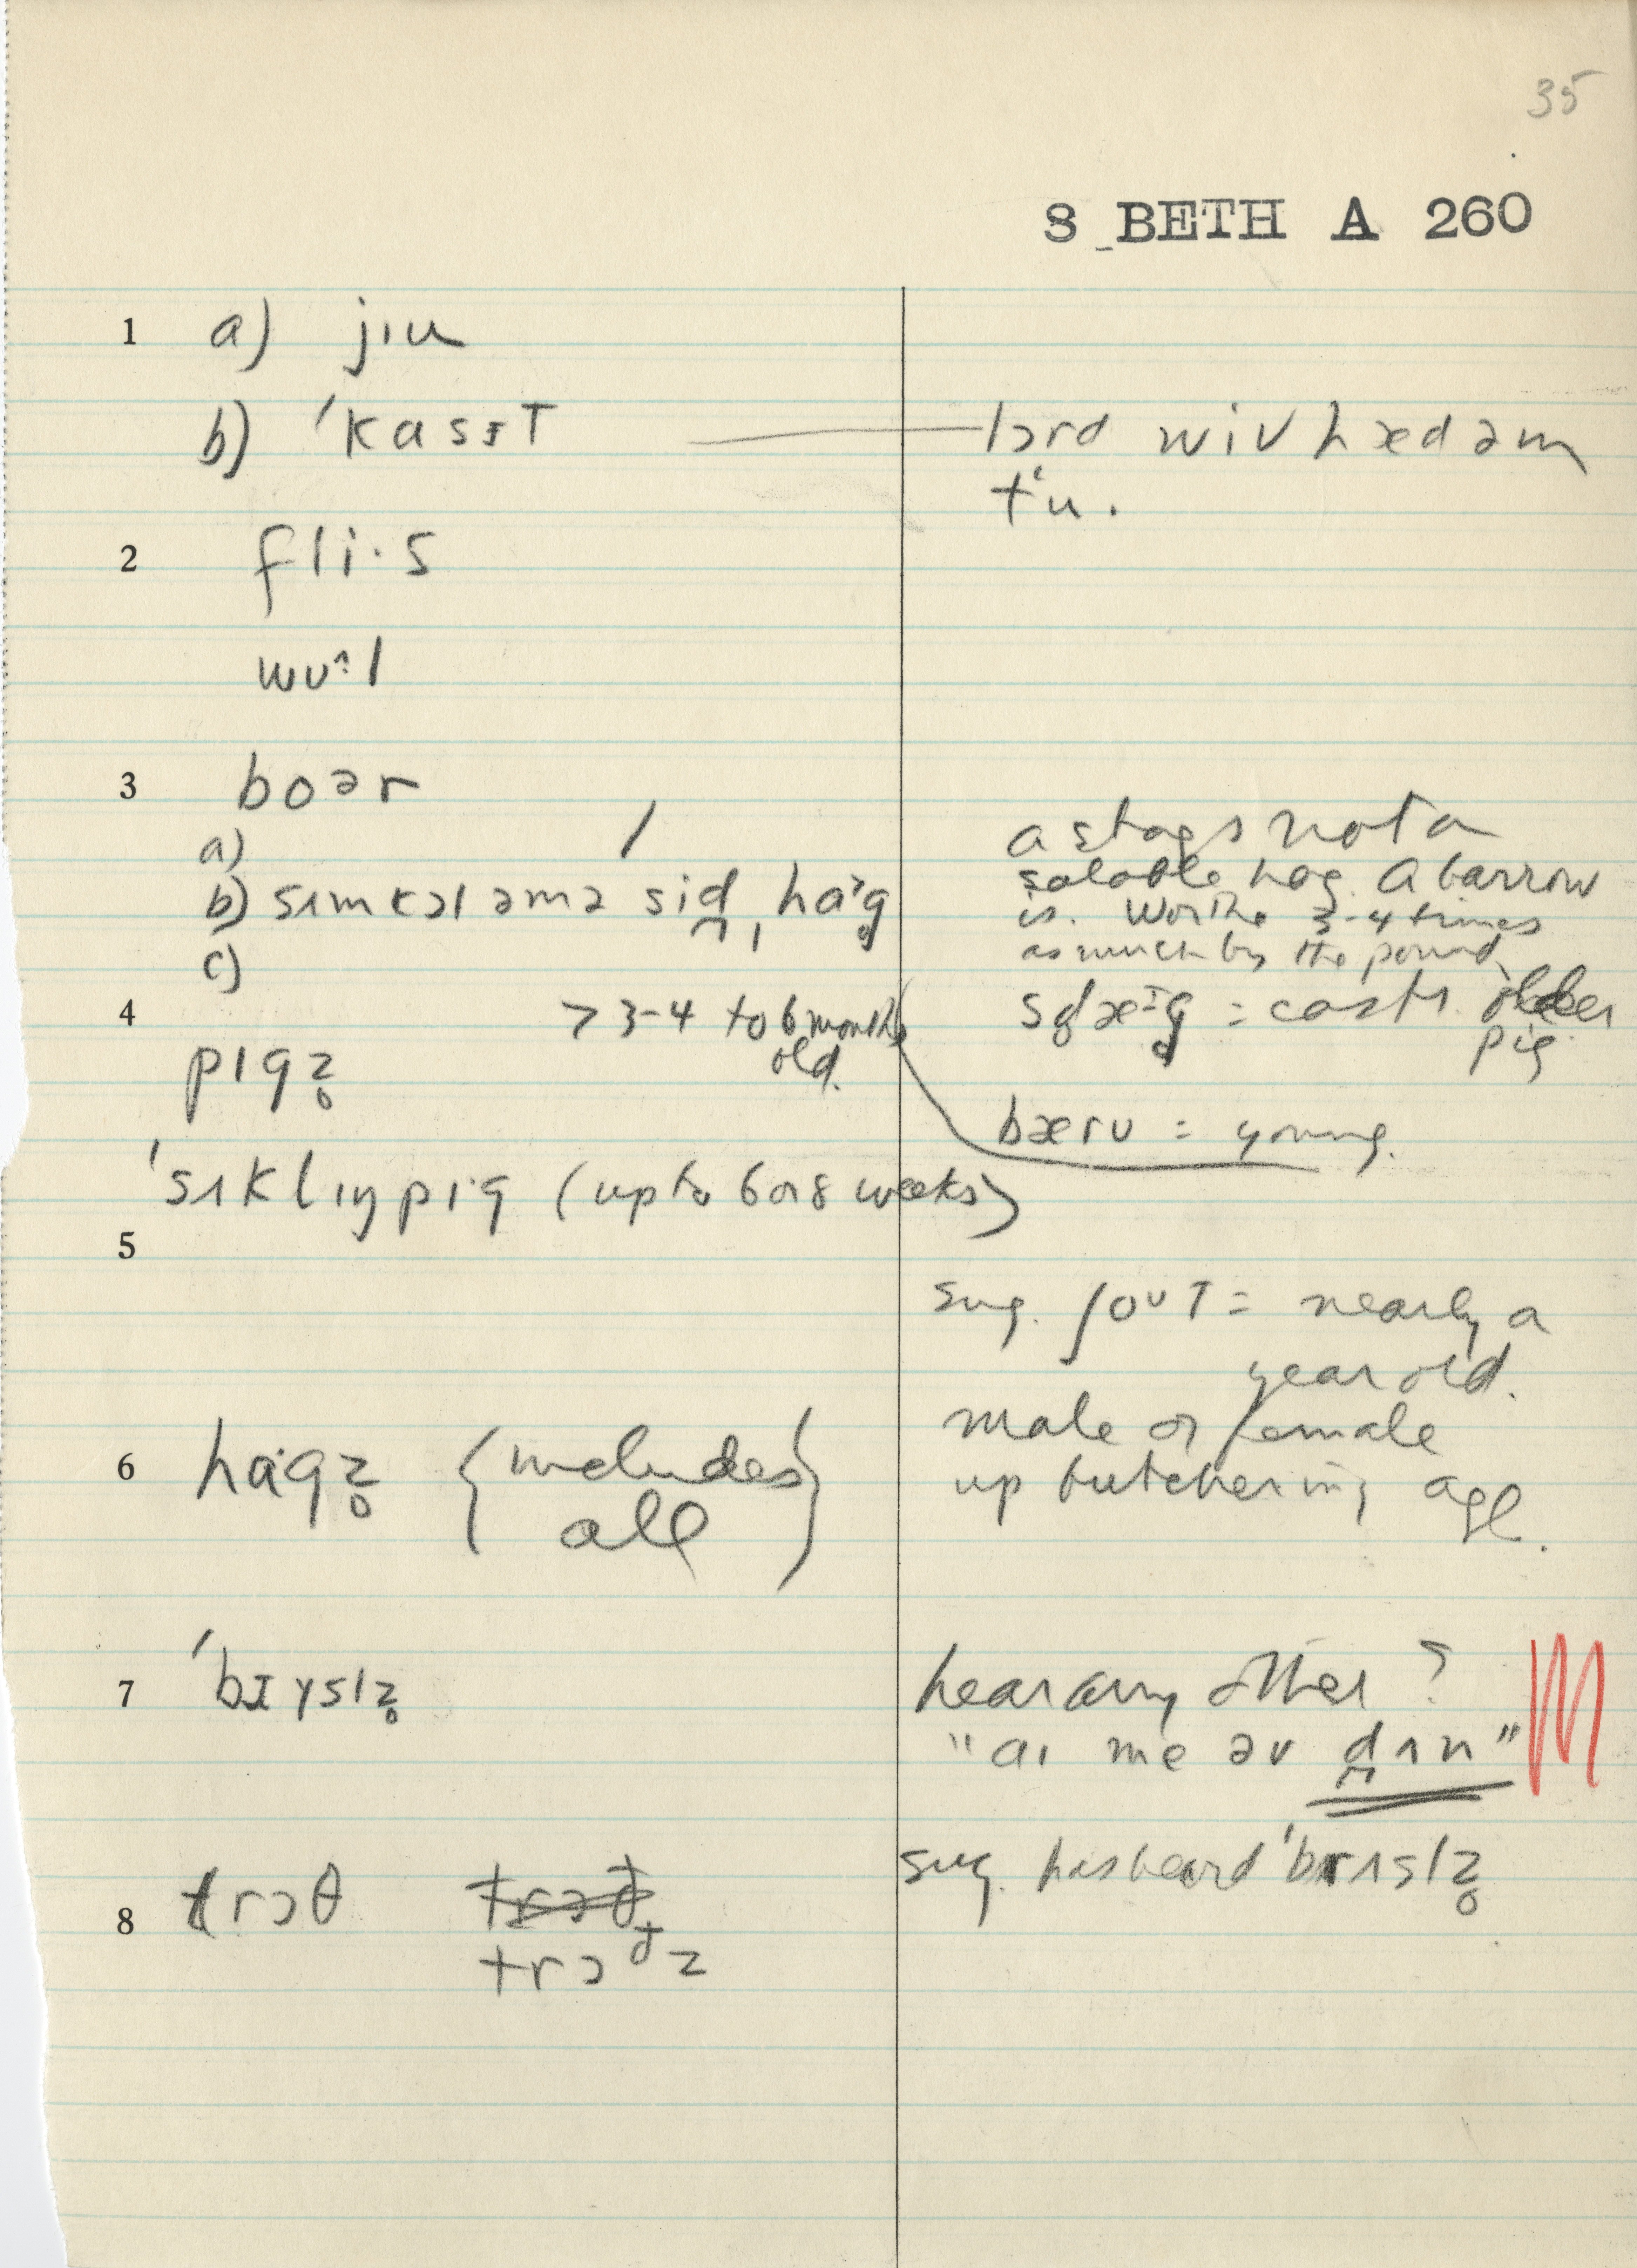 35
8 BETH A 260
1 a) jɪu
b) ˈkɑsɪT — lɔrd wiv hæd əm
tʻu.
2 fli·s
wʊ^:l
3 boər
a)
b) sʌm kɔl əmə sid, hɑ˃g
c)
a stag's not a
salable hog. A barrow
is. Worth 3-4 times
as much by the pound
4 > 3-4 to 6 months
old.
= castr. older
pig.
pɪgz̥
bærʊ = young.
ˈsʌklɪŋ pɪg (up to 6 or 8 weeks)
5
sug. ʃoʊT = nearly a
year old.
male or female
up butchering age.
6 hɑgz̥ {includes
all}
7 ˈbɪɤslz̥
hear any other?
"aɪ me əv dʌn"
sug. has heard ˈbrʌslz̥
8 trɔθ
trɔðz